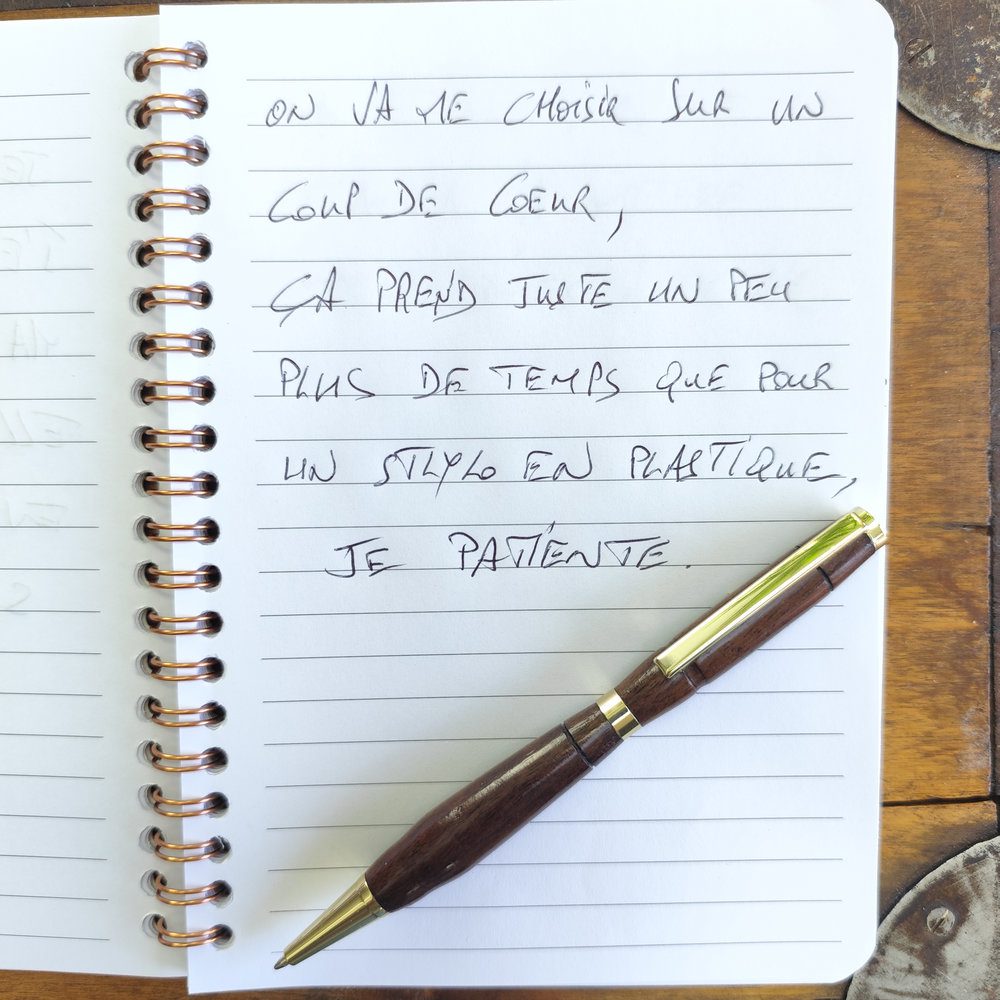 ON VA ME CHOISIR SUR UN
COUP DE COEUR,
ÇA PREND JUSTE UN PEU
PLUS DE TEMPS QUE POUR
UN STYLO EN PLASTIQUE,
JE PATIENTE.